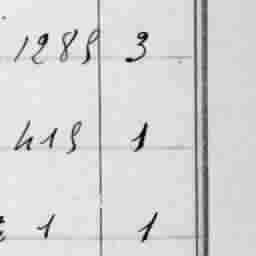 1289 3
419 1
1 1